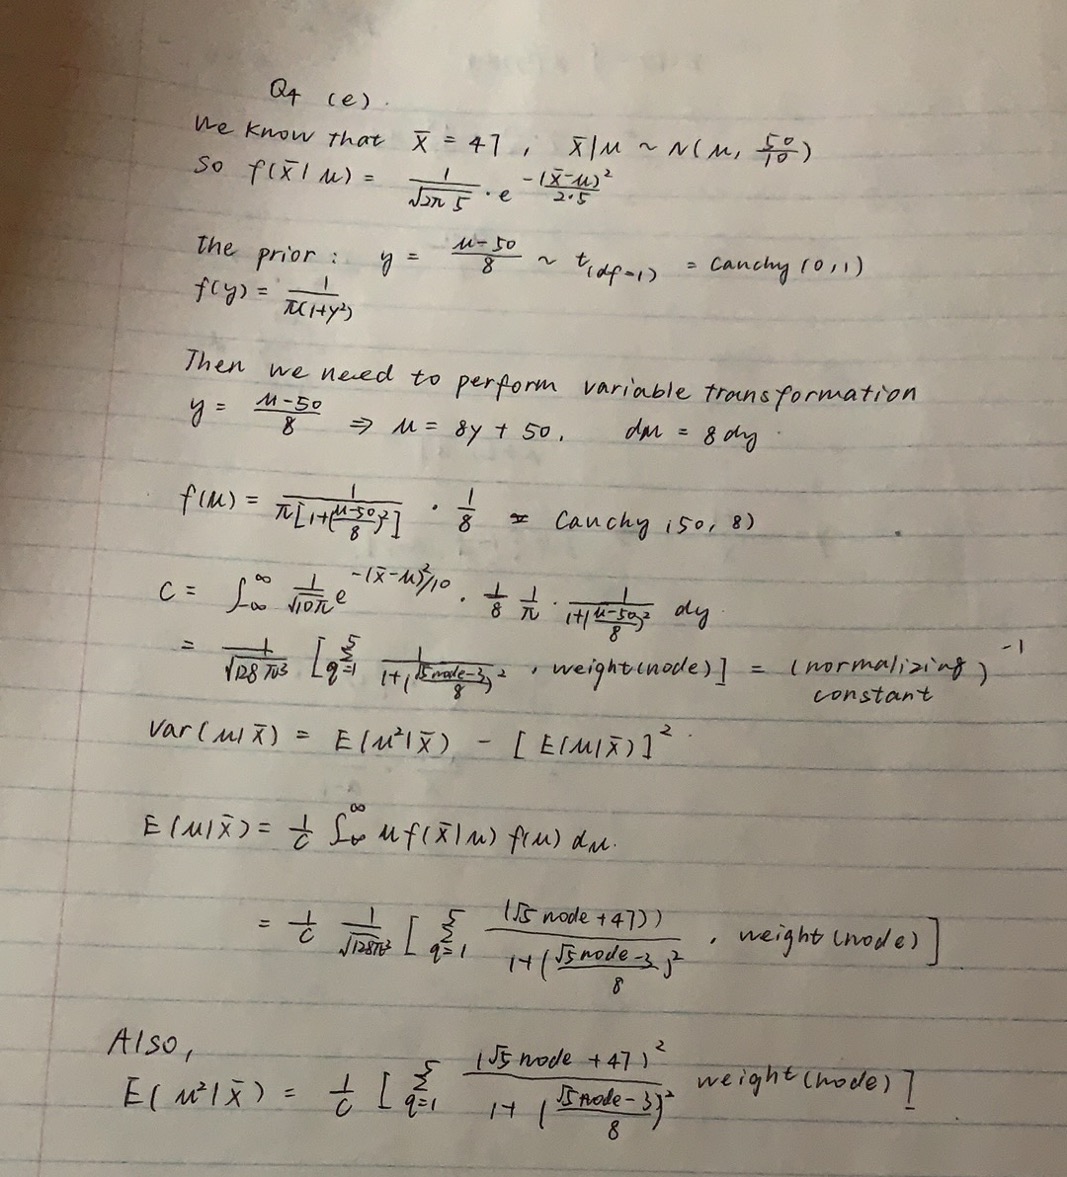 Q4 (e).
We know that x̄ = 47, x̄|μ ~ N(μ, 50/10)
So f(x̄|μ) = 1/√(2π 5) · e^(-(x̄-μ)²/(2·5))
The prior: y = (μ-50)/8 ~ t(df=1) = Cauchy(0,1)
f(y) = 1/(π(1+y²))
Then we need to perform variable transformation
y = (μ-50)/8 ⇒ μ = 8y + 50, dμ = 8 dy.
f(μ) = 1/(π[1+((μ-50)/8)²]) · 1/8 = Cauchy(50, 8)
C = ∫_{-∞}^{∞} 1/√(10π) e^(-(x̄-μ)²/10) · 1/8 1/π · 1/(1+((μ-50)/8)²) dy
= 1/√(128π³) [Σ_{q=1}^{5} 1/(1+((√5 node-3)/8)²) · weight(node)] = (normalizing constant)^-1
Var(μ|x̄) = E(μ²|x̄) - [E(μ|x̄)]².
E(μ|x̄) = 1/C ∫_{-∞}^{∞} μ f(x̄|μ) f(μ) dμ.
= 1/C 1/√(128π³) [Σ_{q=1}^{5} (√5 node+47))/(1+((√5 node-3)/8)²) · weight(node)]
Also,
E(μ²|x̄) = 1/C [Σ_{q=1}^{5} (√5 node+47)²/(1+((√5 node-3)/8)²) weight(node)]